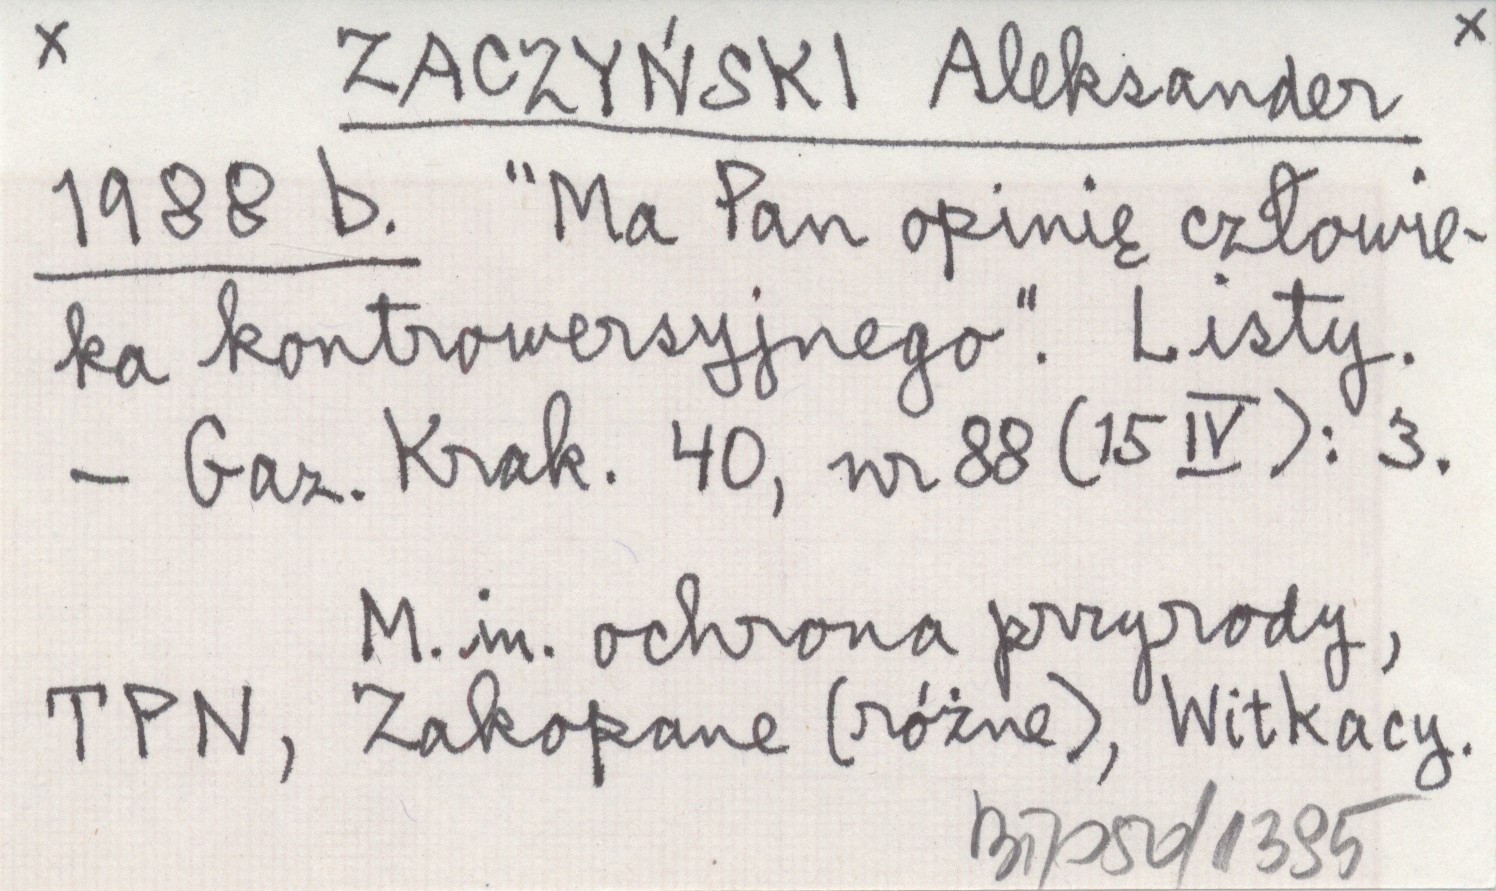 x ZACZYŃSKI Aleksander x
1988 b. "Ma Pan opinię człowie-
ka kontrowersyjnego". Listy.
– Gaz. Krak. 40, nr 88 (15 IV): 3.
M. in. ochrona przyrody,
TPN, Zakopane (różne), Witkacy.